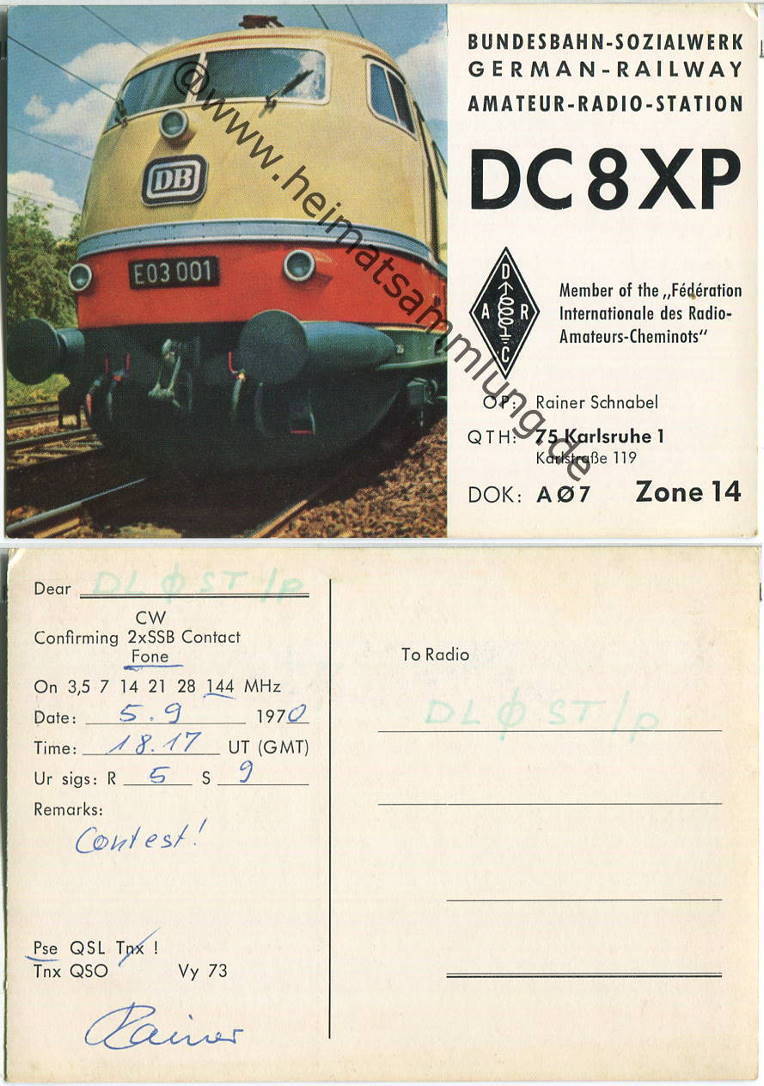 BUNDESBAHN-SOZIALWERK
GERMAN-RAILWAY
AMATEUR-RADIO-STATION
DC8XP
DB
E03 001
D
A R
C
Member of the „Fédération
Internationale des Radio-
Amateurs-Cheminots"
OP: Rainer Schnabel
QTH: 75 Karlsruhe 1
Karlstraße 119
DOK: AØ7 Zone 14
@www.heimatsammlung.de
Dear DLØST/p
CW
Confirming 2xSSB Contact
Fone
On 3,5 7 14 21 28 144 MHz
Date: 5.9 1970
Time: 18.17 UT (GMT)
Ur sigs: R 5 S 9
Remarks:
Contest!
Pse QSL Tnx !
Tnx QSO Vy 73
Rainer
To Radio
DLØST/p